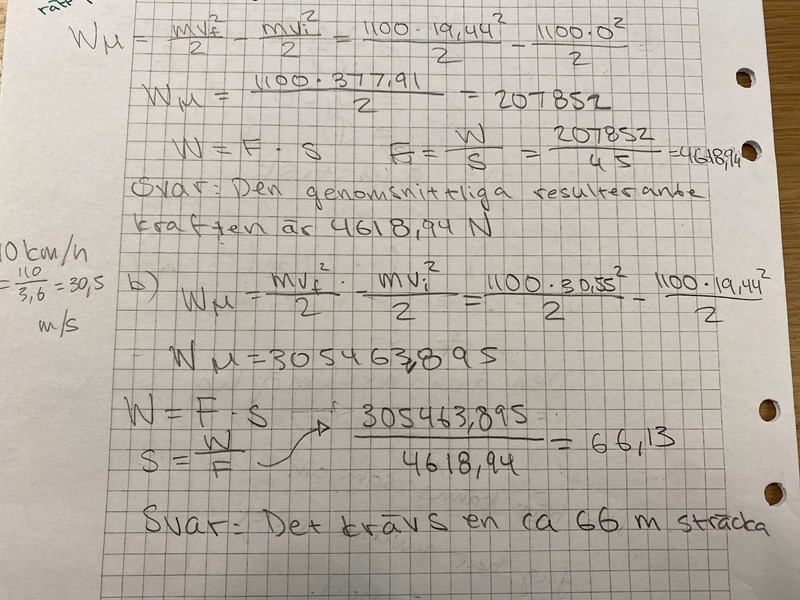 Wμ = mv_f²/2 - mv_i²/2 = 1100·19,44²/2 - 1100·0²/2
Wμ = 1100·377,91/2 = 207852
W = F · s F = W/s = 207852/45 = 4618,94
Svar: Den genomsnittliga resulterante
kraften är 4618,94 N
0 km/h
= 110/3,6 = 30,5
m/s
b) Wμ = mv_f²/2 - mv_i²/2 = 1100·30,55²/2 - 1100·19,44²/2
Wμ = 305463,895
W = F · S
S = W/F → 305463,895/4618,94 = 66,13
Svar: Det krävs en ca 66 m sträcka